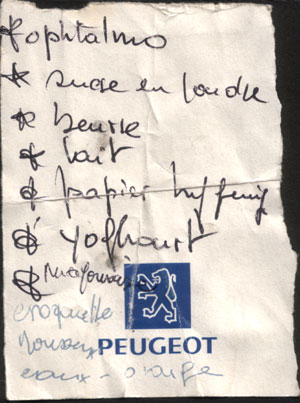 * ophtalmo
* sucre en poudre
* beurre
* lait
* papier
* yoghourt
* mayonnaise
croquette
PEUGEOT
eaux - orange